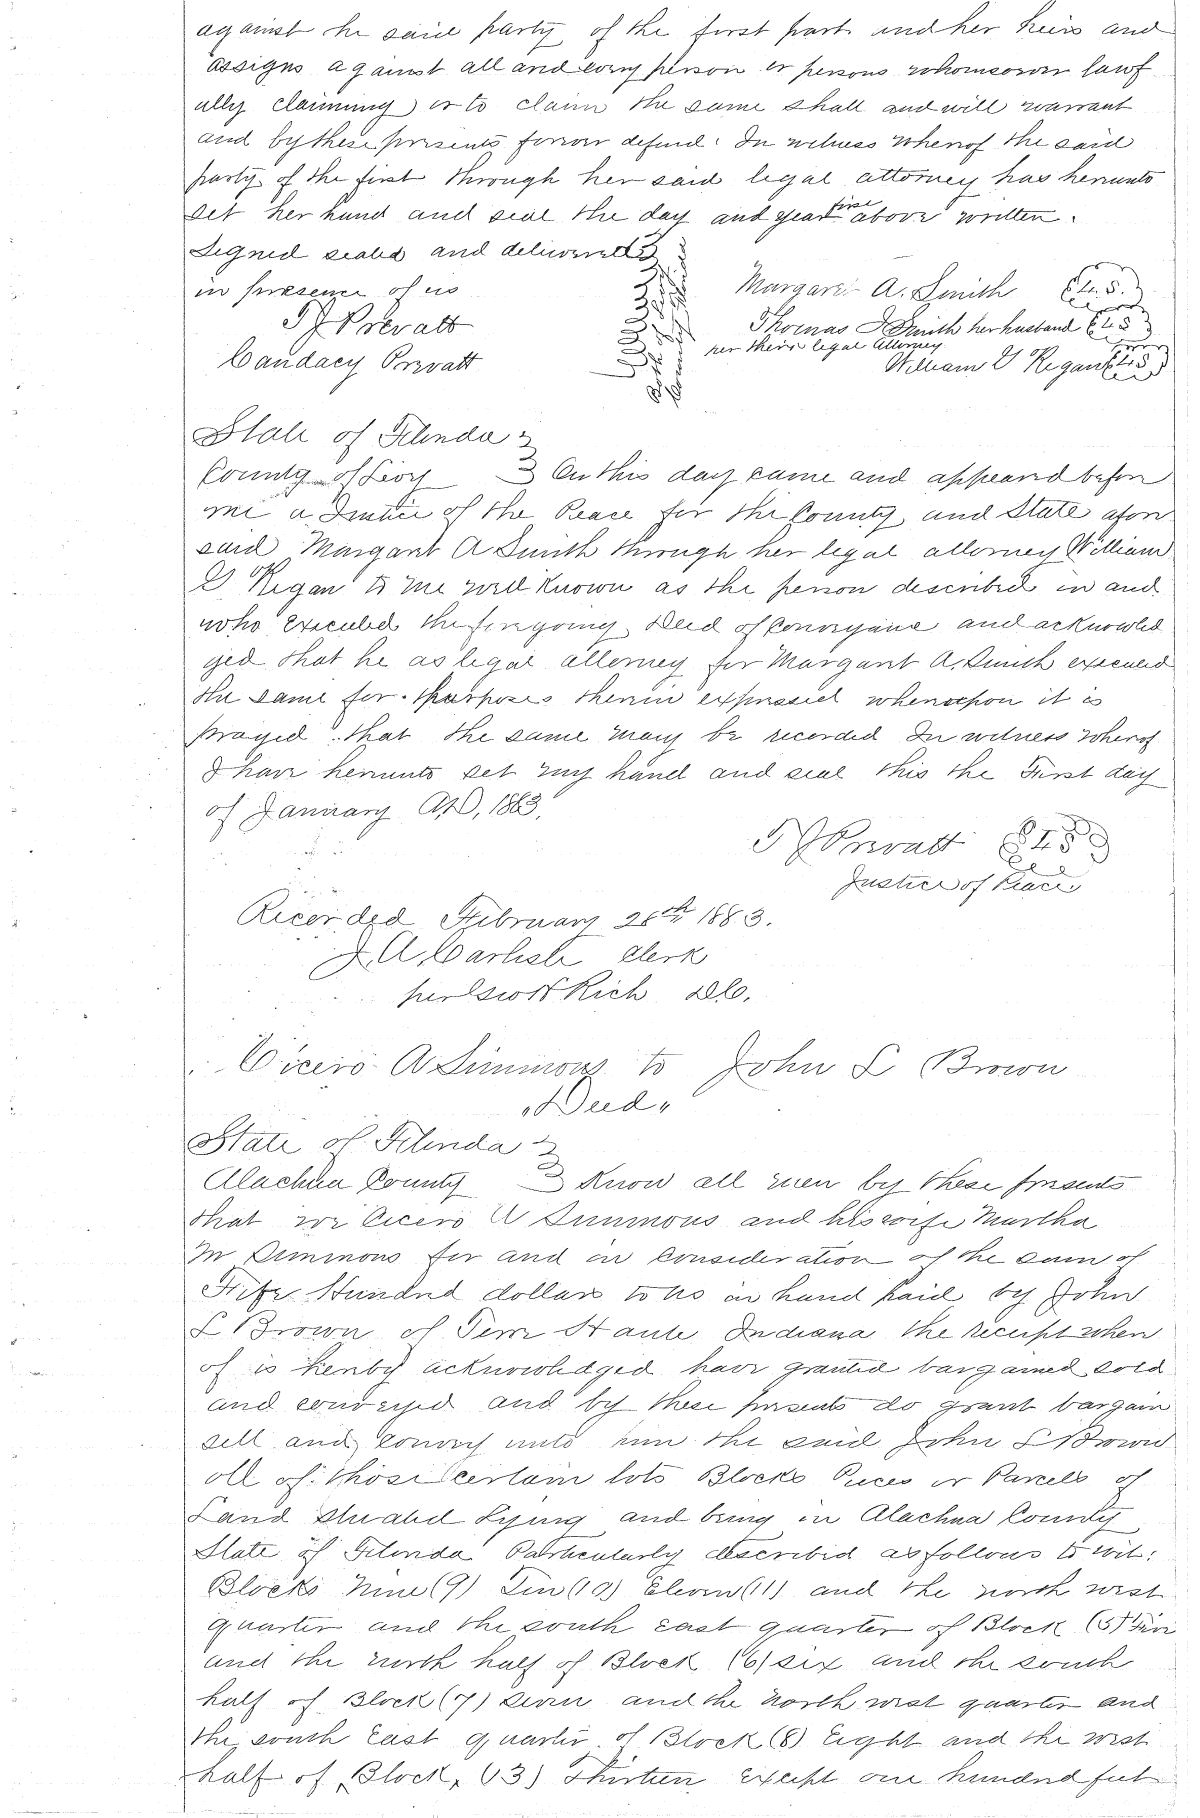 against the said party of the first part and her heirs and
assigns against all and every person or persons whomsoever lawf
ully claiming or to claim the same shall and will warrant
and by these presents forever defend. In witness whereof the said
party of the first through her said legal attorney has hereunto
set her hand and seal the day and year first above written.
Signed sealed and delivered
in presence of us
Margaret A. Smith {L.S.}
T J Prevatt
Thomas J Smith her husband {L S}
per their legal attorney
Candacy Prevatt
William Y Regan {L S}
State of Florida
County of Levy On this day came and appeared before
me a Justice of the Peace for the County and State afore
said Margaret A Smith through her legal attorney William
Y Regan to me well known as the person described in and
who executed the foregoing Deed of Conveyance and acknowled
ged that he as legal attorney for Margaret A. Smith executed
the same for purposes therein expressed whereupon it is
prayed that the same may be recorded In witness whereof
I have hereunto set my hand and seal this the First day
of January A.D. 1883.
T J Prevatt {L S}
Justice of Peace
Recorded February 26th 1883.
J. A. Carlisle Clerk
per Rich D.C.
Cicero A Simmons to John L Brown
"Deed"
State of Florida
Alachua County Know all men by these presents
that we Cicero A Simmons and his wife Martha
M Simmons for and in consideration of the sum of
Five Hundred dollars to us in hand paid by John
L Brown of Terre Haute Indiana the receipt where
of is hereby acknowledged have granted bargained sold
and conveyed and by these presents do grant bargain
sell and convey unto him the said John L Brown
all of those certain lots Blocks Pieces or Parcels of
Land situated Lying and being in Alachua County
State of Florida Particularly described as follows to wit:
Blocks Nine (9) Ten (10) Eleven (11) and the north west
quarter and the south east quarter of Block (5) Five
and the north half of Block (6) six and the south
half of Block (7) seven and the North west quarter and
the south East quarter of Block (8) Eight and the west
half of Block (13) Thirteen except one hundred feet